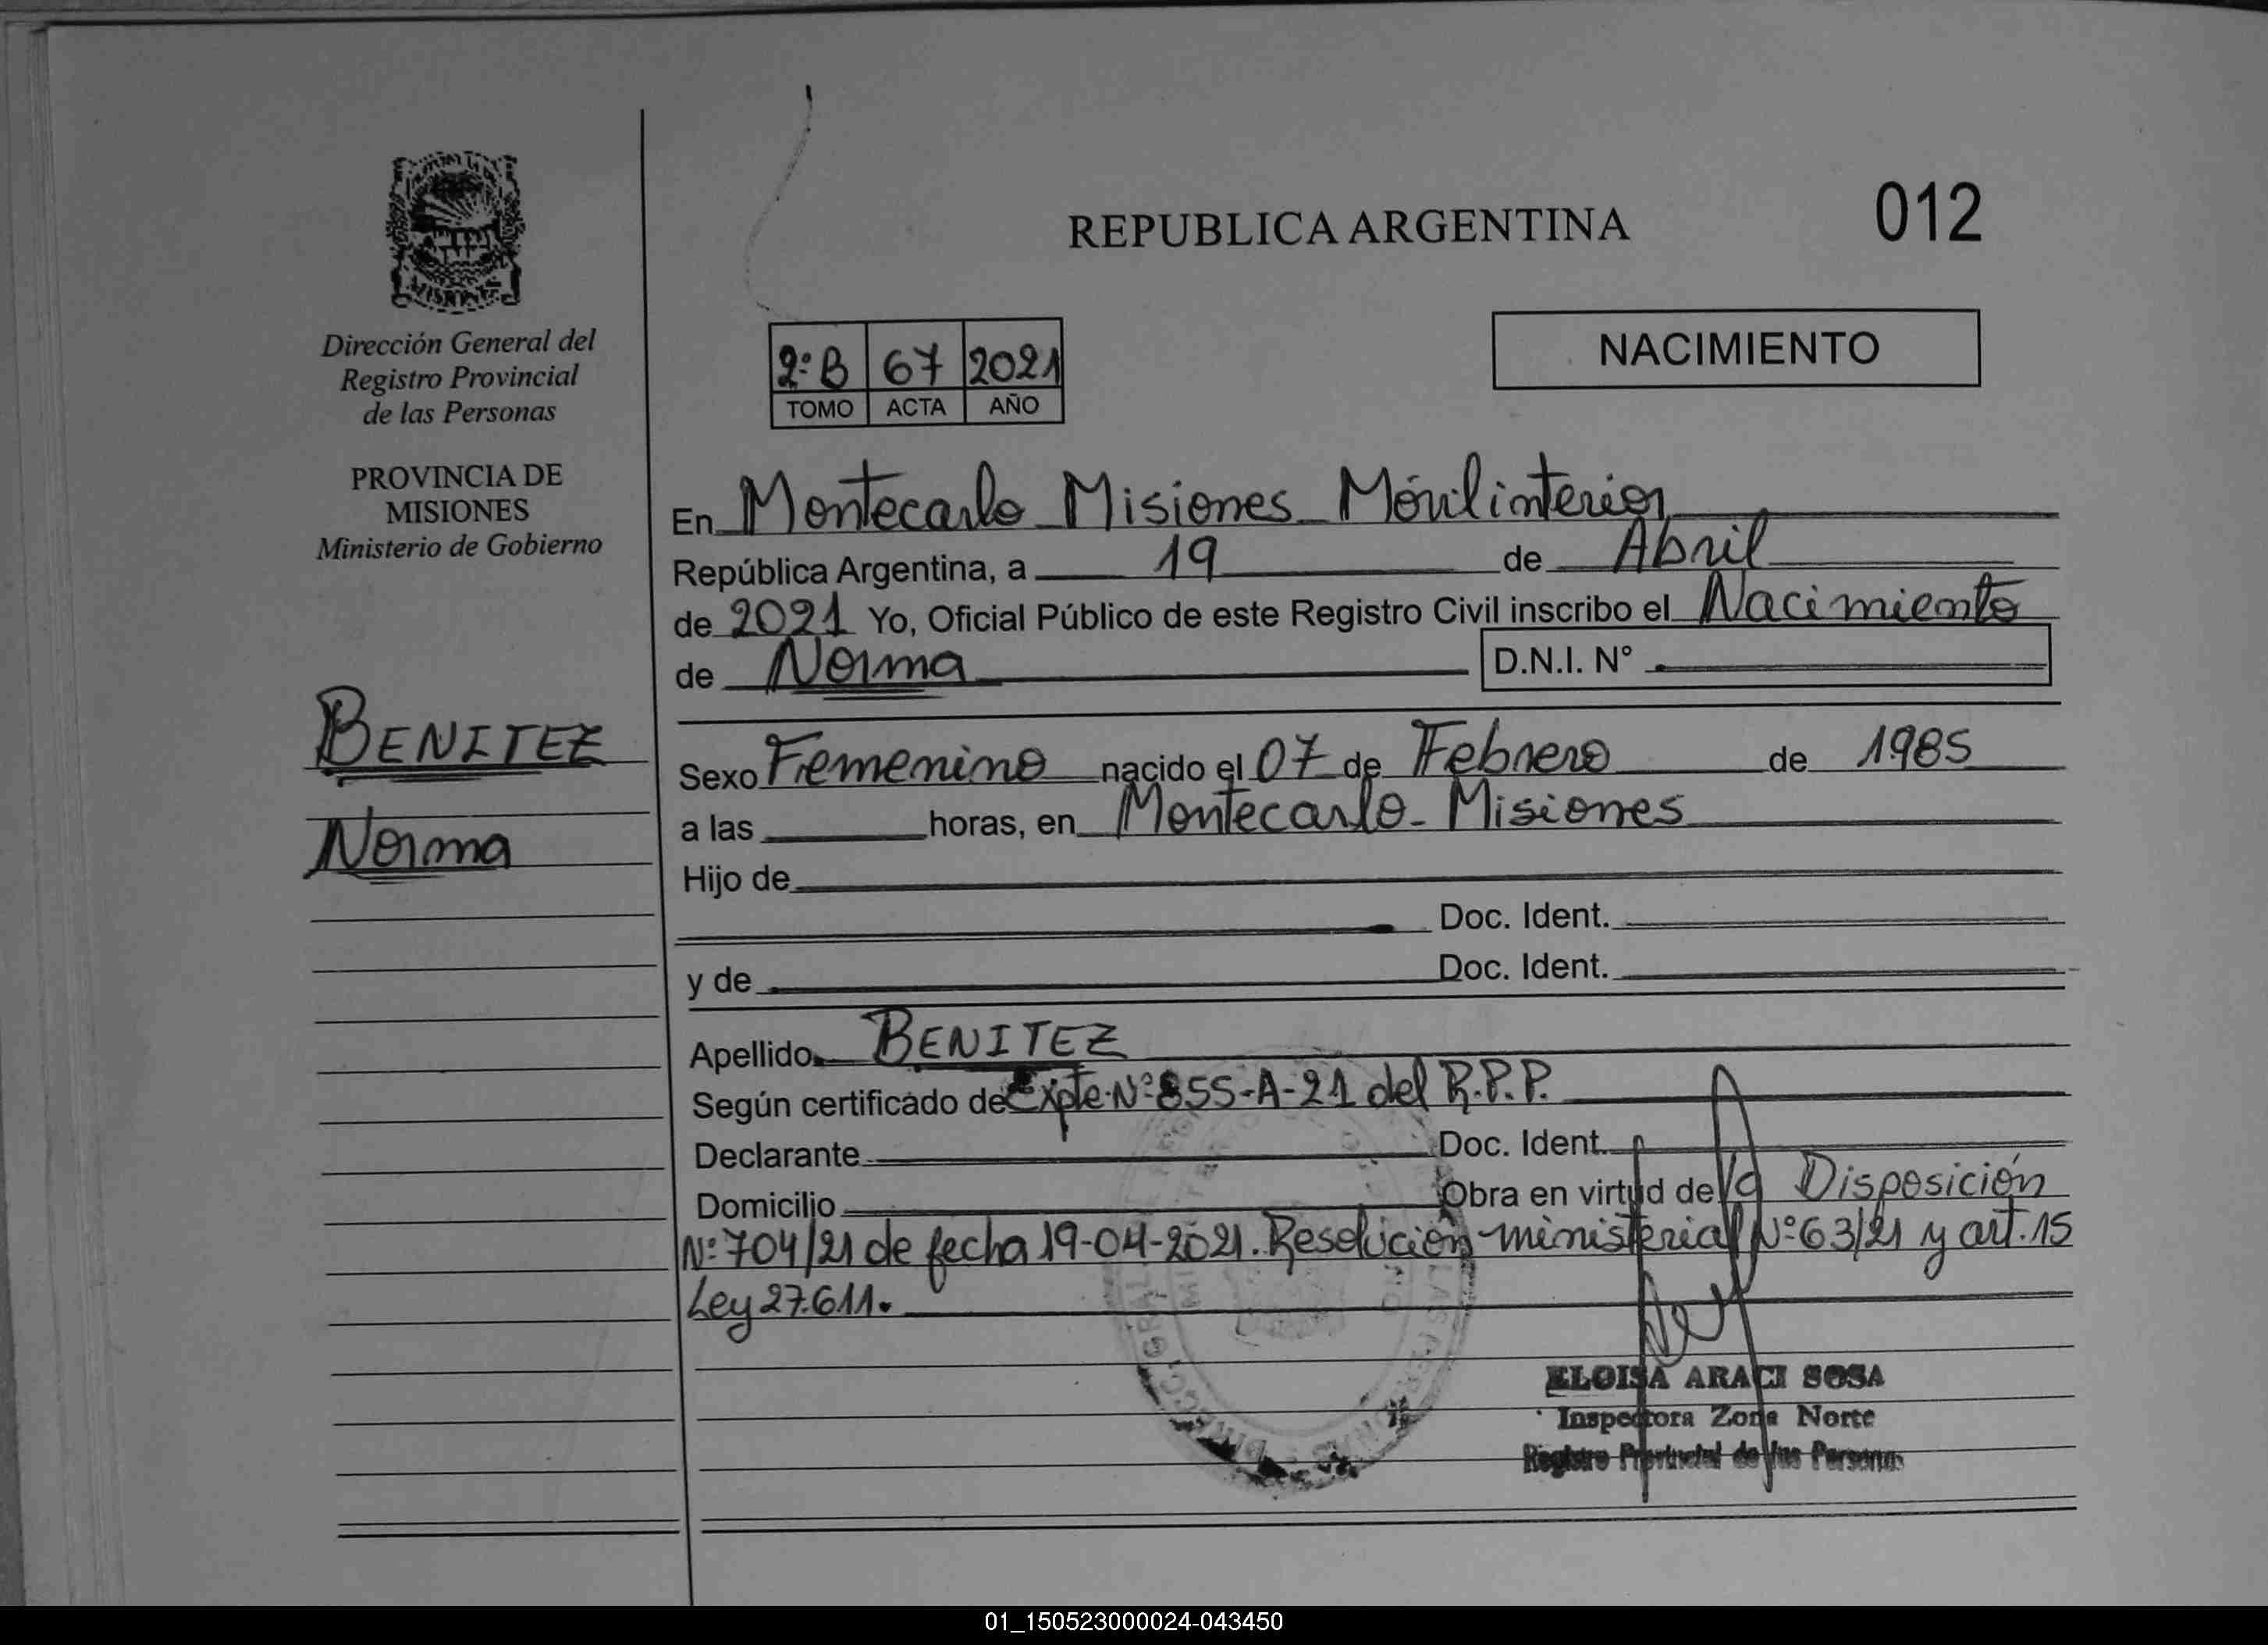 REPUBLICA ARGENTINA
012
MISIONES
Dirección General del
Registro Provincial
de las Personas
PROVINCIA DE
MISIONES
Ministerio de Gobierno
BENITEZ
Norma
2º B 67 2021
TOMO ACTA AÑO
NACIMIENTO
En Montecarlo Misiones Móvil interior
República Argentina, a 19 de Abril
de 2021 Yo, Oficial Público de este Registro Civil inscribo el Nacimiento
de Norma D.N.I. N°
Sexo Femenino nacido el 07 de Febrero de 1985
a las horas, en Montecarlo - Misiones
Hijo de
Doc. Ident.
y de Doc. Ident.
Apellido BENITEZ
Según certificado de Expte. Nº 855-A-21 del R.P.P.
Declarante Doc. Ident.
Domicilio Obra en virtud de la Disposición
Nº 704/21 de fecha 19-04-2021. Resolución ministerial Nº 63/21 y art. 15
Ley 27.611.
ELOISA ARACI SOSA
Inspectora Zona Norte
Registro Provincial de las Personas
01_150523000024-043450